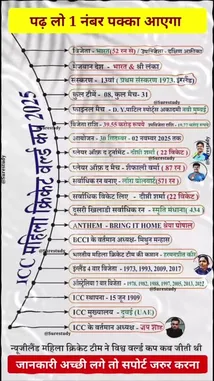 पढ़ लो 1 नंबर पक्का आएगा
ICC महिला क्रिकेट वर्ल्ड कप 2025
विजेता - भारत(52 रन से) / उपविजेता - दक्षिण अफ्रीका
मेजबान देश - भारत & श्री लंका
संस्करण - 13वां (प्रथम संस्करण 1973, इंग्लैंड)
कुल टीम - 08, कुल मैच- 31
फाइनल मैच - D.Y.पाटिल स्पोर्ट्स अकादमी नवी मुम्बई
विजेता राशि - 39.55 करोड़ रुपए
आयोजन - 30 सितम्बर - 02 नवम्बर 2025 तक)
प्लेयर ऑफ द टूर्नामेंट - दीप्ती शर्मा ( 22 विकेट )
प्लेयर ऑफ द मैच - शैफाली वर्मा ( 87 रन )
सर्वाधिक रन बनाए - लौरा वोल्वार्ड्ट(571 रन )
सर्वाधिक विकेट लिए - दीप्ती शर्मा (22 विकेट)
दूसरी खिलाडी सर्वाधिक रन - स्मृति मंधाना( 434 )
ANTHEM - BRING IT HOME श्रेया घोषाल
BCCI के वर्तमान अध्यक्ष- मिथुन मन्हास
भारतीय महिला क्रिकेट टीम की कप्तान - हरमनप्रीत कौर
इंग्लैंड 4 बार विजेता - 1973, 1993, 2009, 2017
ऑस्ट्रेलिया 7 बार विजेता - 1978, 1982, 1988, 1997, 2005, 2013, 2022
ICC स्थापना - 15 जून 1909
ICC मुख्यालय - दुबई (UAE)
ICC के वर्तमान अध्यक्ष - जय शाह
न्यूजीलैंड महिला क्रिकेट टीम ने विश्व वर्ल्ड कप कब जीती थी
जानकारी अच्छी लगे तो सपोर्ट जरुर करना